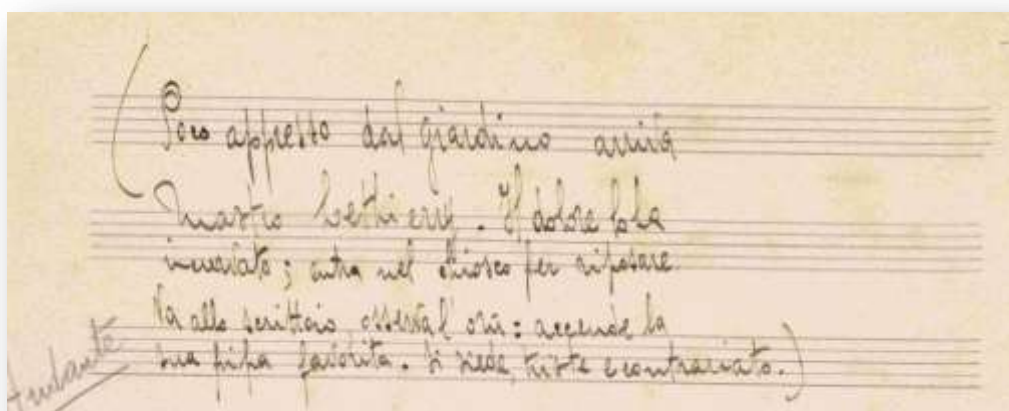 (Poco appresto dal giardino arriva
Mastro Lethierry. Il dolore lo ha
invecchiato; entra nel chiosco per riposare.
Va allo scrittoio, osserva l'ora: accende la
sua pipa favorita. Si siede, triste e contrariato.)
Andante